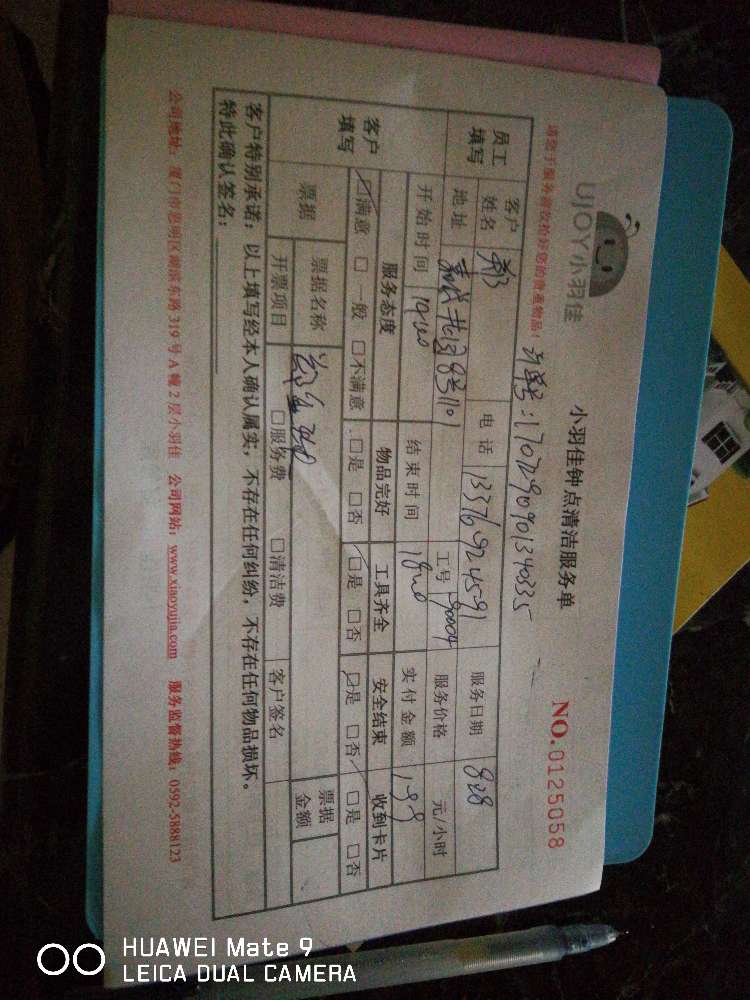 UJOY小羽佳
小羽佳钟点清洁服务单
NO. 0125058
请您于服务前收拾好您的贵重物品!
员工填写
客户姓名
电话 13376924591
服务日期 828
地址
工号 90004
服务价格 元/小时
开始时间 14:00
结束时间 18:00
实付金额 199
客户填写
服务态度 物品完好 工具齐全 安全结束 收到卡片
☑满意 □一般 □不满意 □是 □否 ☑是 □否 ☑是 □否 ☑是 □否
票据
票据名称
票据金额
开票项目 □服务费 □清洁费 客户签名
客户特别承诺:以上填写经本人确认属实,不存在任何纠纷,不存在任何物品损坏。
特此确认签名:
公司地址:厦门市思明区湖滨东路319号A幢2层小羽佳 公司网站:www.xiaoyujia.com 服务监督热线:0592-5888123
HUAWEI Mate 9
LEICA DUAL CAMERA